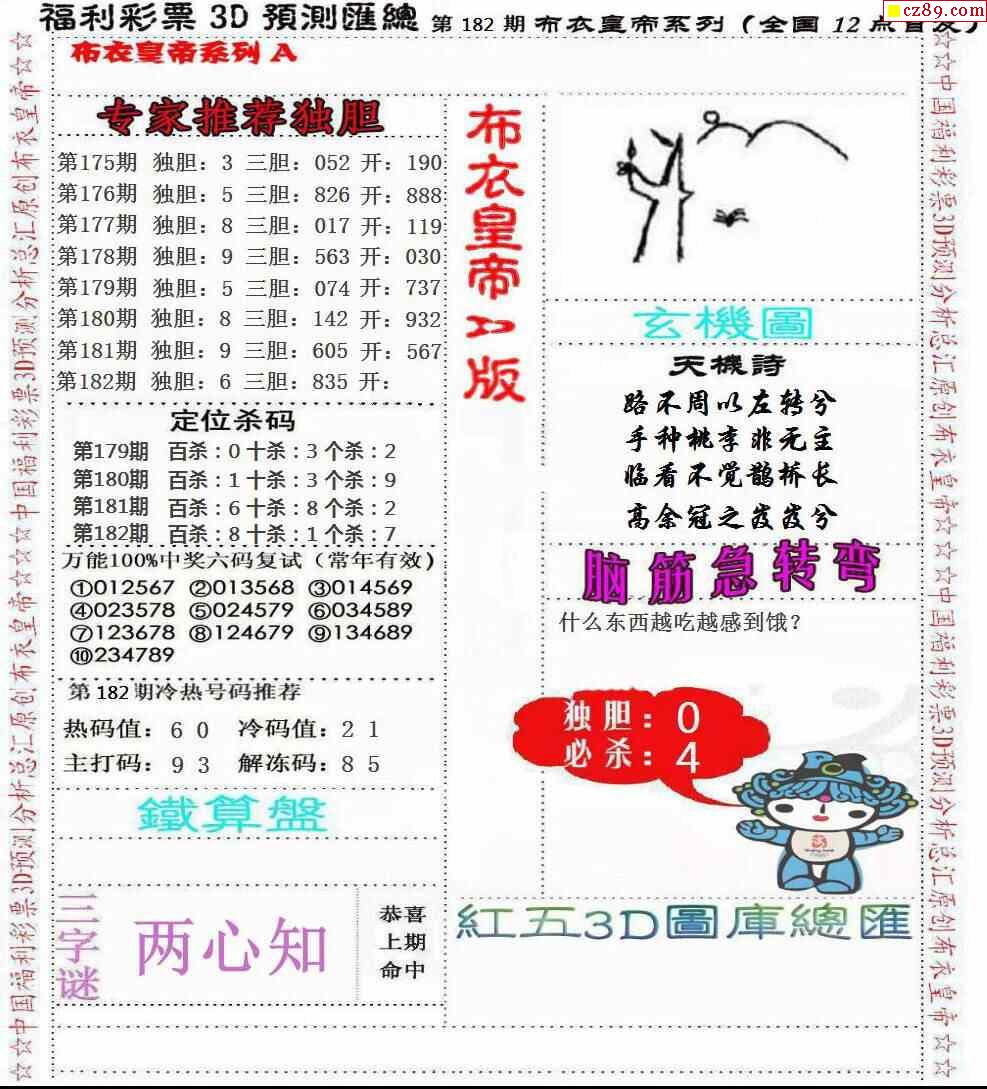 福利彩票3D預測匯總 第182期布衣皇帝系列（全国12点首发）
cz89.com
布衣皇帝系列A
☆☆中国福利彩票3D预测分析总汇原创布衣皇帝☆☆中国福利彩票3D预测分析总汇原创布衣皇帝☆☆
专家推荐独胆
第175期 独胆：3 三胆：052 开：190
第176期 独胆：5 三胆：826 开：888
第177期 独胆：8 三胆：017 开：119
第178期 独胆：9 三胆：563 开：030
第179期 独胆：5 三胆：074 开：737
第180期 独胆：8 三胆：142 开：932
第181期 独胆：9 三胆：605 开：567
第182期 独胆：6 三胆：835 开：
定位杀码
第179期 百杀：0十杀：3个杀：2
第180期 百杀：1十杀：3个杀：9
第181期 百杀：6十杀：8个杀：2
第182期 百杀：8十杀：1个杀：7
万能100%中奖六码复试（常年有效）
①012567 ②013568 ③014569
④023578 ⑤024579 ⑥034589
⑦123678 ⑧124679 ⑨134689
⑩234789
第182期冷热号码推荐
热码值：60 冷码值：21
主打码：93 解冻码：85
鐵算盤
三字谜
两心知
恭喜
上期
命中
布衣皇帝A版
玄機圖
天機詩
路不周以左转兮
手种桃李非无主
临看不觉鹊桥长
高余冠之岌岌兮
脑筋急转弯
什么东西越吃越感到饿？
独胆：0
必杀：4
紅五3D圖庫總匯
☆☆中国福利彩票3D预测分析总汇原创布衣皇帝☆☆中国福利彩票3D预测分析总汇原创布衣皇帝☆☆